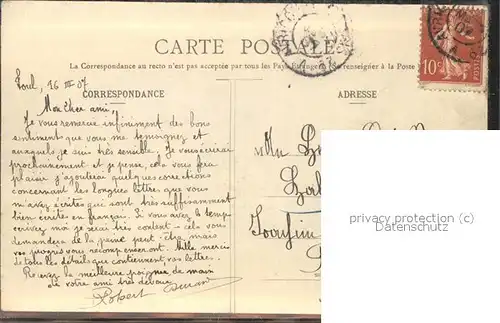 CARTE POSTALE
La Correspondance au recto n'est pas acceptée par tous les Pays Étrangers (Se renseigner à la Poste)
CORRESPONDANCE
ADRESSE
10c
Toul, 26 III 07
Mon cher ami,
Je vous remercie infiniment des bons
sentiment que vous me temoignez et
auxquels je suis très sensible. Je vous écrirai
prochainement et je pense, cela vous fera
plaisir j'ajouterai quelques corrections
concernant les longues lettres que vous
m'avez écrites qui sont très suffisamment
bien écrites en français. Si vous avez le temps
écrivez moi je serai très content - cela vous
demandera de la peine peut-être mais
vos progrès vous récompenseront. Mille mercis
de tous les détails que contiennent vos lettres.
Recevez la meilleure poignée de main
de votre ami très dévoué
Robert
privacy protection (c)
Datenschutz